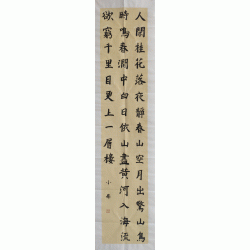 人閒桂花落夜靜春山空月出驚山鳥
時鳴春澗中白日依山盡黃河入海流
欲窮千里目更上一層樓